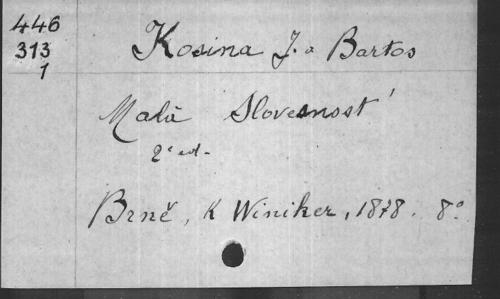 446
313
1
Kosina J. a Bartos
Malá Slovesnost'
2e ed.
Brně, K Winiker, 1878. 8°